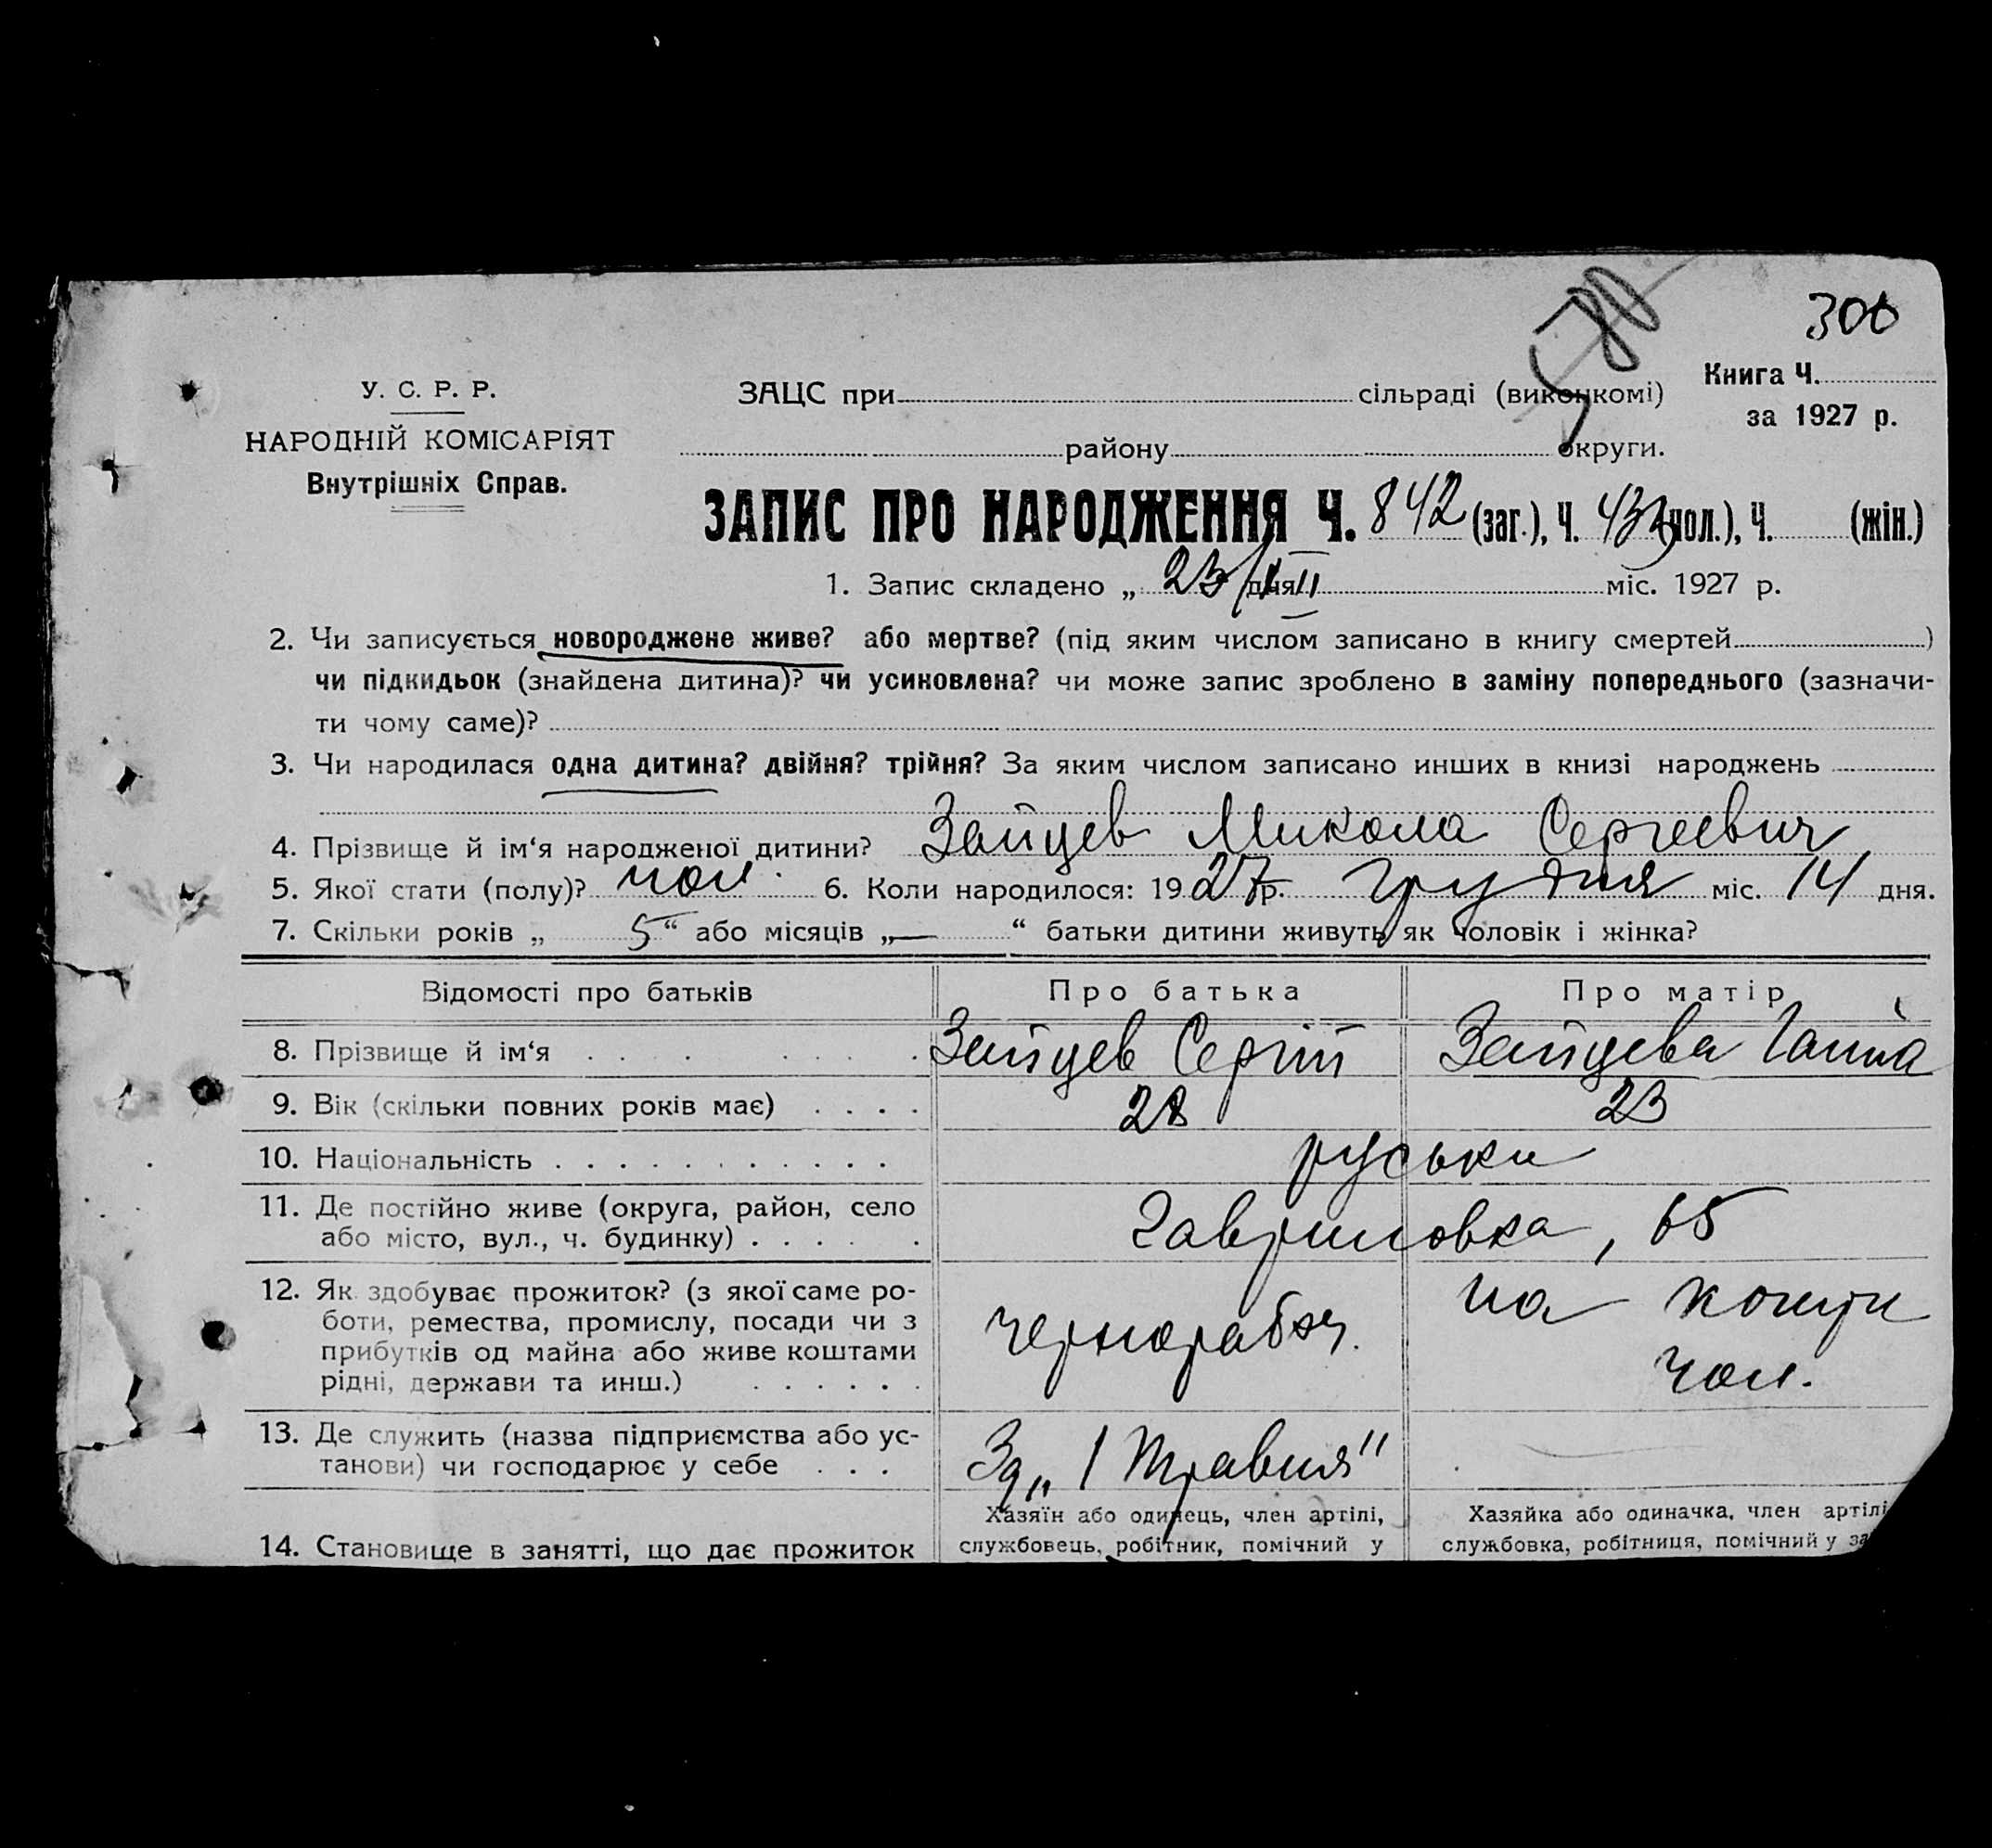 300
У. С. Р. Р.
НАРОДНІЙ КОМІСАРІЯТ
Внутрішніх Справ.
ЗАЦС при сільраді (виконкомі)
району округи.
Книга Ч.
за 1927 р.
ЗАПИС ПРО НАРОДЖЕННЯ Ч. 842 (заг.), Ч. 433 (чол.), Ч. (жін.)
1. Запис складено „ 23/XII дня міс. 1927 р.
2. Чи записується новороджене живе? або мертве? (під яким числом записано в книгу смертей )
чи підкидьок (знайдена дитина)? чи усиновлена? чи може запис зроблено в заміну попереднього (зазначи-
ти чому саме)?
3. Чи народилася одна дитина? двійня? трійня? За яким числом записано инших в книзі народжень
4. Прізвище й ім‘я народженої дитини? Зайцев Микола Сергеевич
5. Якої стати (полу)? чол. 6. Коли народилося: 1927 р. грудня міс. 14 дня.
7. Скільки років „ 5 “ або місяців „ — “ батьки дитини живуть як чоловік і жінка?
Відомості про батьків Про батька Про матір
8. Прізвище й ім‘я Зайцев Сергій Зайцева Ганна
9. Вік (скільки повних років має) 28 23
10. Національність руськи
11. Де постійно живе (округа, район, село
або місто, вул., ч. будинку) Гавриловка, 65
12. Як здобуває прожиток? (з якої саме ро-
боти, ремества, промислу, посади чи з
прибутків од майна або живе коштами
рідні, держави та инш.)
чернорабоч.
на кошти
чол.
13. Де служить (назва підприємства або ус-
танови) чи господарює у себе
Зд „1 Травня"
14. Становище в занятті, що дає прожиток
Хазяїн або одинець, член артілі,
службовець, робітник, помічний у
Хазяйка або одиначка, член артілі
службовка, робітниця, помічний у